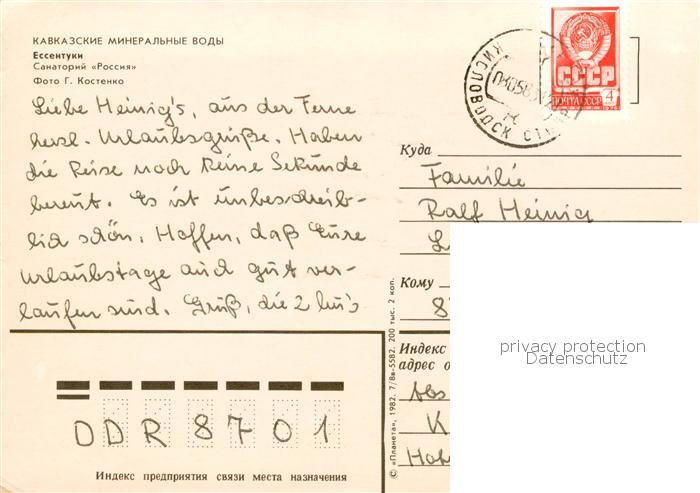 КАВКАЗСКИЕ МИНЕРАЛЬНЫЕ ВОДЫ
Ессентуки
Санаторий «Россия»
Фото Г. Костенко
Liebe Heinig's, aus der Ferne
herzl. Urlaubsgrüße. Haben
die Reise noch keine Sekunde
bereut. Es ist unbeschreib-
lich schön. Hoffen, daß Eure
Urlaubstage auch gut ver-
laufen sind. Gruß, die 2
КИСЛОВОДСК
СССР
ПОЧТА СССР 4
Куда
Familie
Ralf Heinig
Кому
8
Индекс
адрес о
Abs
K
© «Планета», 1982. 7/8в-5582. 200 тыс. 2 коп.
DDR 8701
Индекс предприятия связи места назначения
privacy protection
Datenschutz